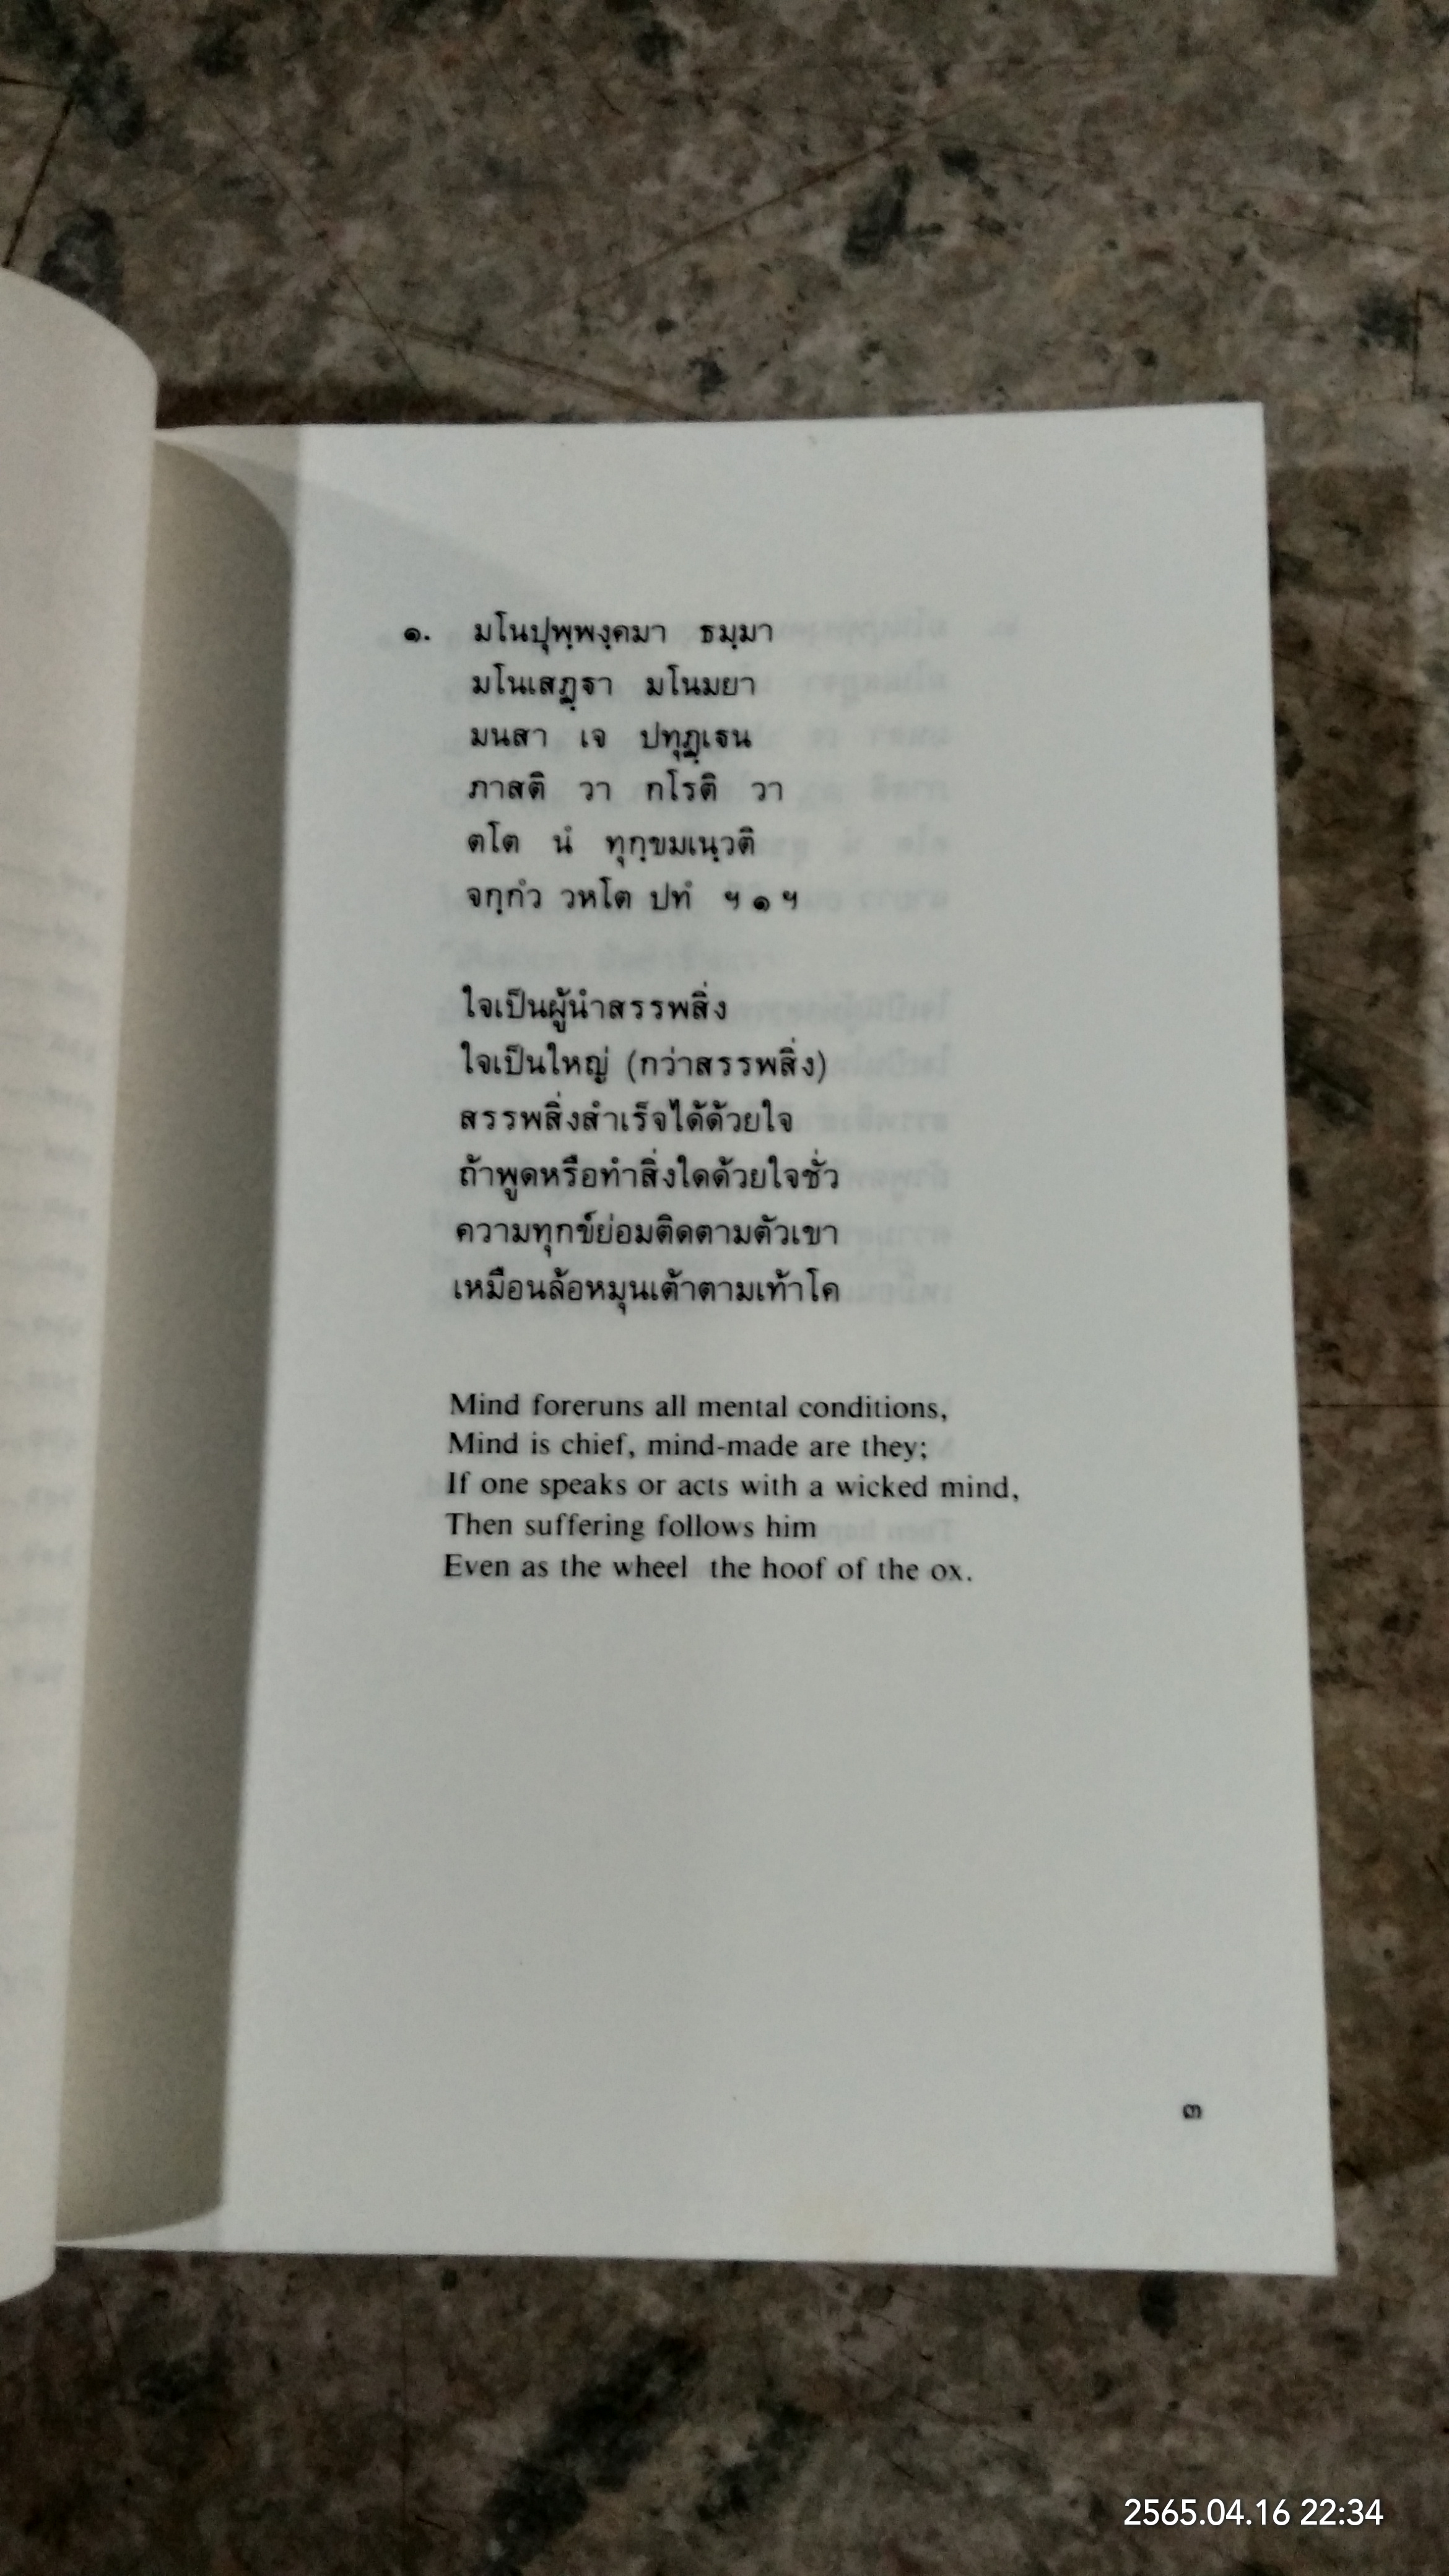 ๑. มโนปุพฺพงฺคมา ธมฺมา
มโนเสฏฺฐา มโนมยา
มนสา เจ ปทุฏฺเฐน
ภาสติ วา กโรติ วา
ตโต นํ ทุกฺขมเนฺวติ
จกฺกํว วหโต ปทํ ฯ ๑ ฯ
ใจเป็นผู้นำสรรพสิ่ง
ใจเป็นใหญ่ (กว่าสรรพสิ่ง)
สรรพสิ่งสำเร็จได้ด้วยใจ
ถ้าพูดหรือทำสิ่งใดด้วยใจชั่ว
ความทุกข์ย่อมติดตามตัวเขา
เหมือนล้อหมุนเต้าตามเท้าโค
Mind foreruns all mental conditions,
Mind is chief, mind-made are they;
If one speaks or acts with a wicked mind,
Then suffering follows him
Even as the wheel the hoof of the ox.
๓
2565.04.16 22:34